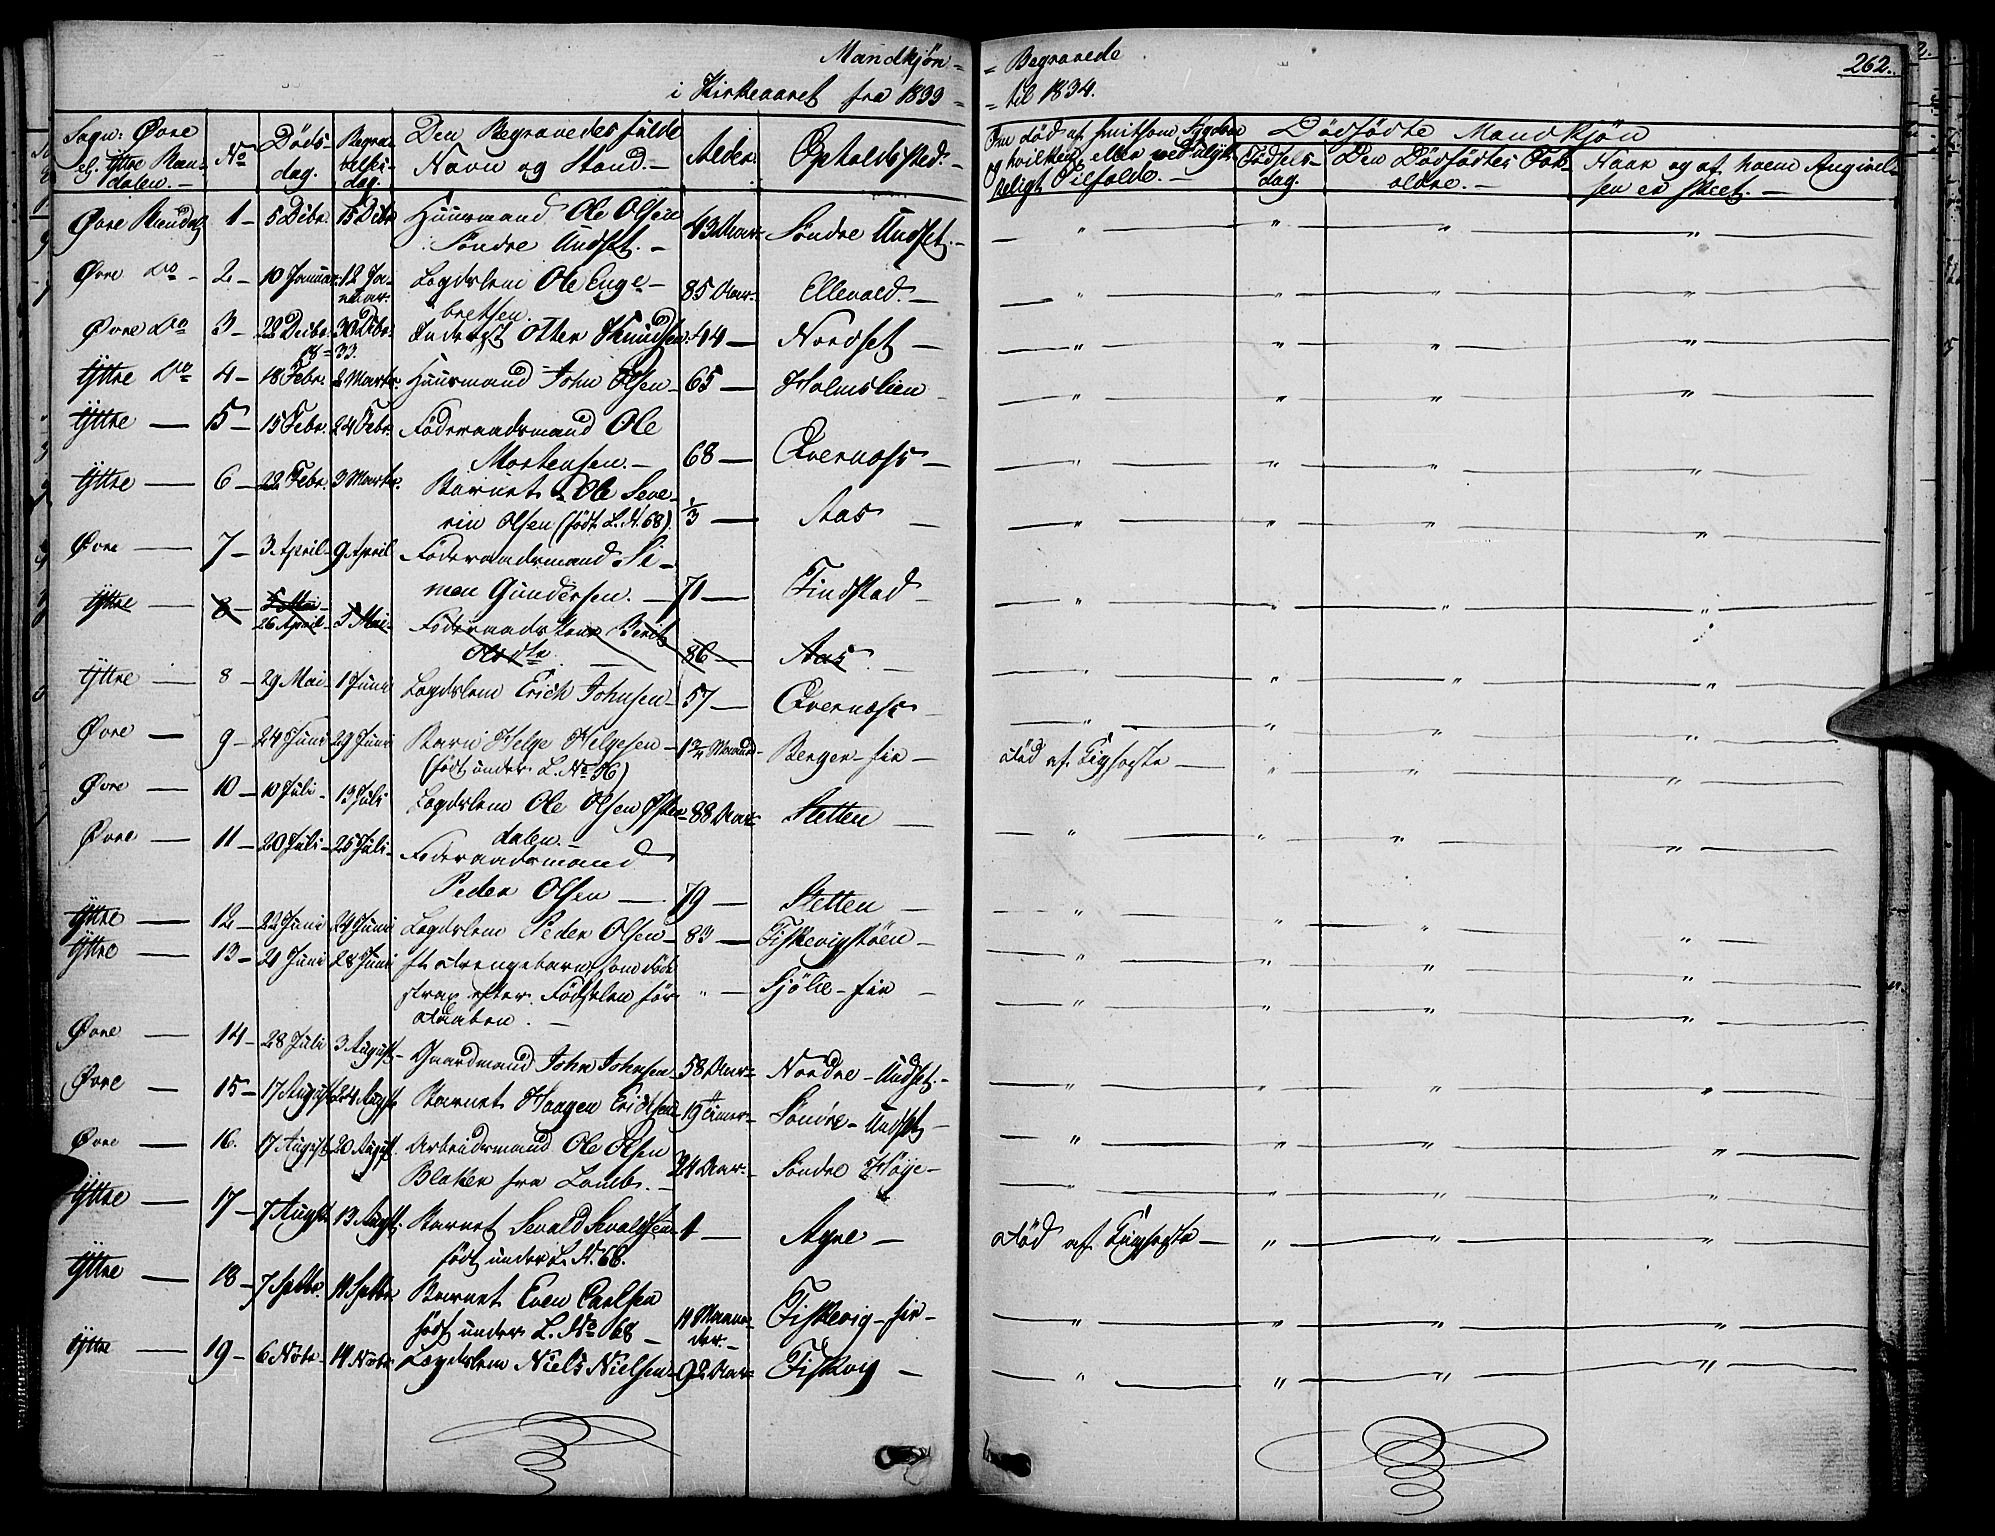 Mandkjøn =
i Kirkeaaret fra 1833 =
= Begravede
= til 1834.
262.
Sogn: Øvre el. Yttre Rendalen. —
No
Døds-dag.
Begravelsesdag.
Den Begravedes fulde Navn og Stand. —
Alder
Opholdssted: —
Om død af smitsom Sygdom og hvilken, eller ved ulykkeligt Tilfælde. —
Dødfødte Mandkjøn
Fødsels-dag.
Den Dødfødtes Forældre. —
Naar og af hvem Angivelsen er skeet. —
Øvre Rendal 1 — 5 Decbr. 15 Decbr Huusmand Ole Olsen
Søndre Undset. — 43 Aar — Søndre Undset. —
Øvre Do — 2 — 10 Januar. 12 Januar. Lægdslem Ole Enge-
bretsen. 85 Aar — Ellevold. —
Øvre Do 3 — 28 Decbr. 30 Decbr. 18=33. Inderst Otter Knudsen 44 — Nordset —
Yttre Do 4 — 18 Febr. 2 Marts. Huusmand John Olsen — 65 — Holmslien
Yttre — 5 — 15 Febr. 24 Febr. Føderaadsmand Ole
Mortensen. — 68 — Qvernæss —
Yttre — 6 — 22 Febr. 3 Marts. Barnet Ole Seve-
rin Olsen (født L. N. 68). 1/3 — Aas —
Øvre — 7 — 3 April 9 April Føderaadsmand Si-
mon Gundersen. — 71 — Findstad
Yttre — 8 — 5 Mai 26 April 5 Mai Føderaadskone Berit
Olsdtr. — 86 — Aas. —
Yttre — 8 — 29 Mai 1 Juni Lægdslem Erich Johnsen — 57 — Qvernæss
Øvre — 9 — 24 Juni 29 Juni Barn Helge Helgesen — Berger-eie —
(født under L. No 76) død af Kighoste —
Øvre — 10 — 10 Juli 13 Juli Lægdslem Ole Olsen Østen-
dalen. — 88 Aar Stetten —
Øvre — 11 — 20 Juli 25 Juli Føderaadsmand
Peder Olsen — 79 — Stetten —
Yttre — 12 — 22 Juni 24 Juni Lægdslem Peder Olsen — 83 — Fiskevigstøen —
Yttre — 13 — 21 Juni 28 Juni et drengebarn som døde
strax efter Fødselen før
daaben. — " — Sjølie-eie —
Øvre — 14 — 28 Juli 3 August — Gaardmand John Johnsen — 58 Aar — Nordre-Undset. —
Øvre — 15 — 17 August 24 Augst Barnet Haagen Erichsen 19 Timer — Søndre-Undset —
Øvre — 16. 17 August 20 August. Arbeidsmand Ole Olsen
Blaker fra Lomb. — 24 Aar — Søndre Høye —
Yttre — 17 — 7 Augst 13 Augst. Barnet Sevald Sevaldsen 1 — Agre —
født under L. N. 68. død af Kighoste —
Yttre — 18 — 7 Septbr. 14 Septbr. Barnet Even Carlsen
født under L. No 68 — 11 Maaneder. — Fiskevig-eie —
Yttre — 19 — 6 Novbr. 14 Novbr. Lægdslem Niels Nielsen — 92 Aar — Fiskvig —